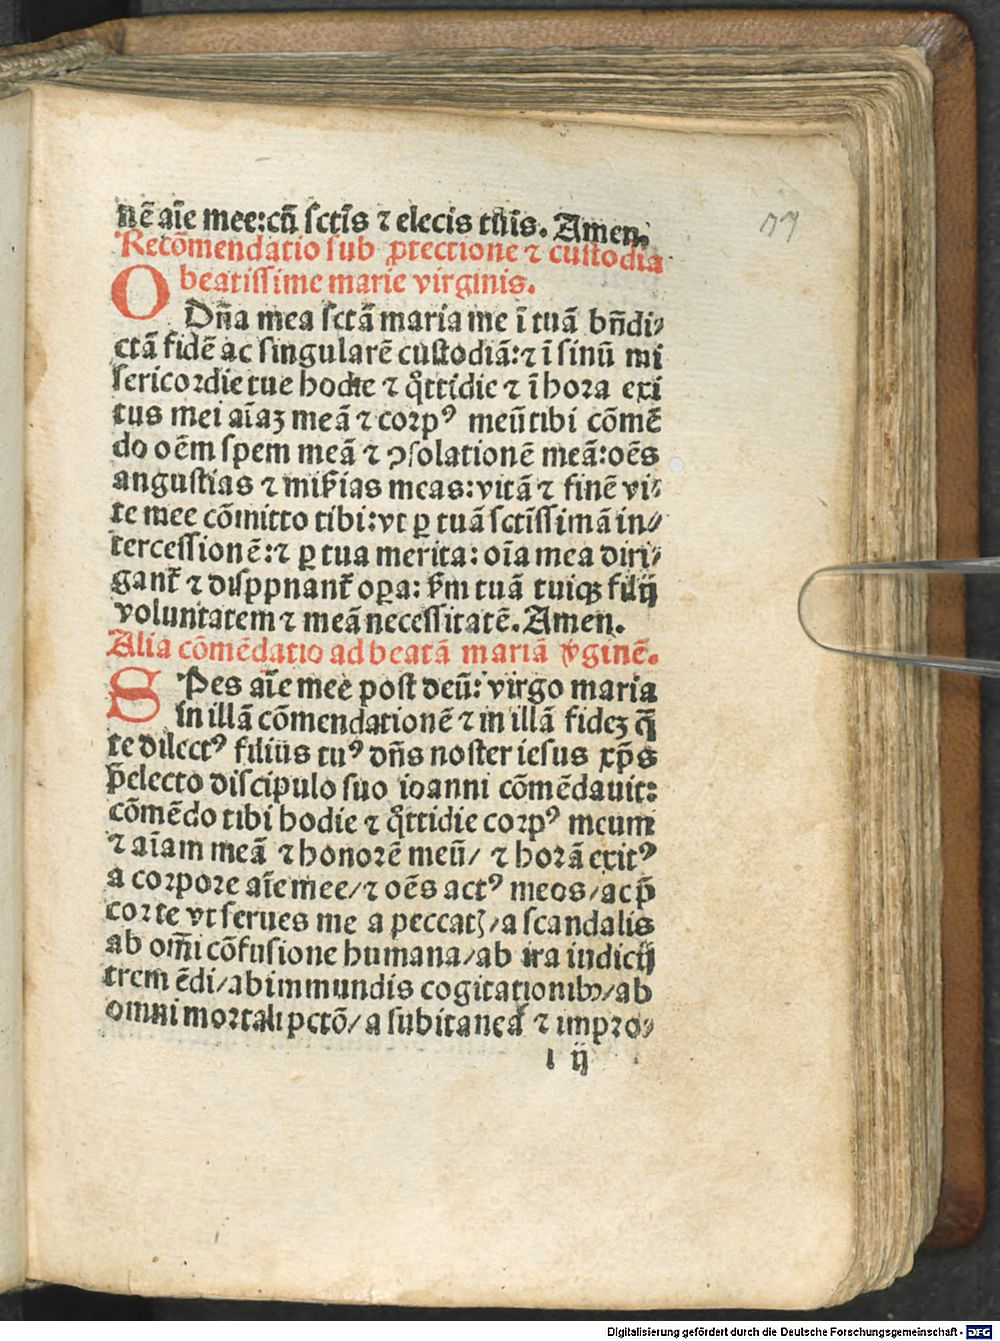 nē aīe mee:cū sctīs ⁊ elecis tuis. Amen.
77
Recōmendatio sub ꝓtectione ⁊ custodia
beatissime marie virginis.
O Dn̄a mea sctā maria me ī tuā bn̄di⸗
ctā fidē ac singularē custodiā:⁊ ī sinū mi
sericordie tue hodie ⁊ q̊ttidie ⁊ ī hora exi
tus mei aīaꝫ meā ⁊ corpꝰ meū tibi cōmē
do oēm spem meā ⁊ ꝯsolationē meā:oēs
angustias ⁊ mis̄ias meas:vitā ⁊ finē vi⸗
te mee cōmitto tibi:vt ꝑ tuā sctīssimā in⸗
tercessionē:⁊ ꝑ tua merita: oīa mea diri⸗
gant᷑ ⁊ disppnant᷑ oꝑa: s̄m tuā tuiqꝫ filij
voluntatem ⁊ meā necessitatē. Amen.
Alia cōmēdatio ad beatā mariā v̄ginē.
S Pes aīe mee post deū: virgo maria
in illā cōmendationē ⁊ in illā fideꝫ q̄
te dilectꝰ filius tuꝰ dn̄s noster iesus xp̄s
p̄electo discipulo suo ioanni cōmēdauit:
cōmēdo tibi hodie ⁊ q̊ttidie corpꝰ meum
⁊ aīam meā ⁊ honorē meū/ ⁊ horā exitꝰ
a corpore aīe mee/⁊ oēs actꝰ meos/ac p̄
cor te vt serues me a peccatꝭ/a scandalis
ab om̄i cōfusione humana/ab ira iudicij
trem ēdi/ab immundis cogitationibꝰ/ab
omni mortali pctō/a subitanea ⁊ impro⸗
l ij
Digitalisierung gefördert durch die Deutsche Forschungsgemeinschaft - DFG